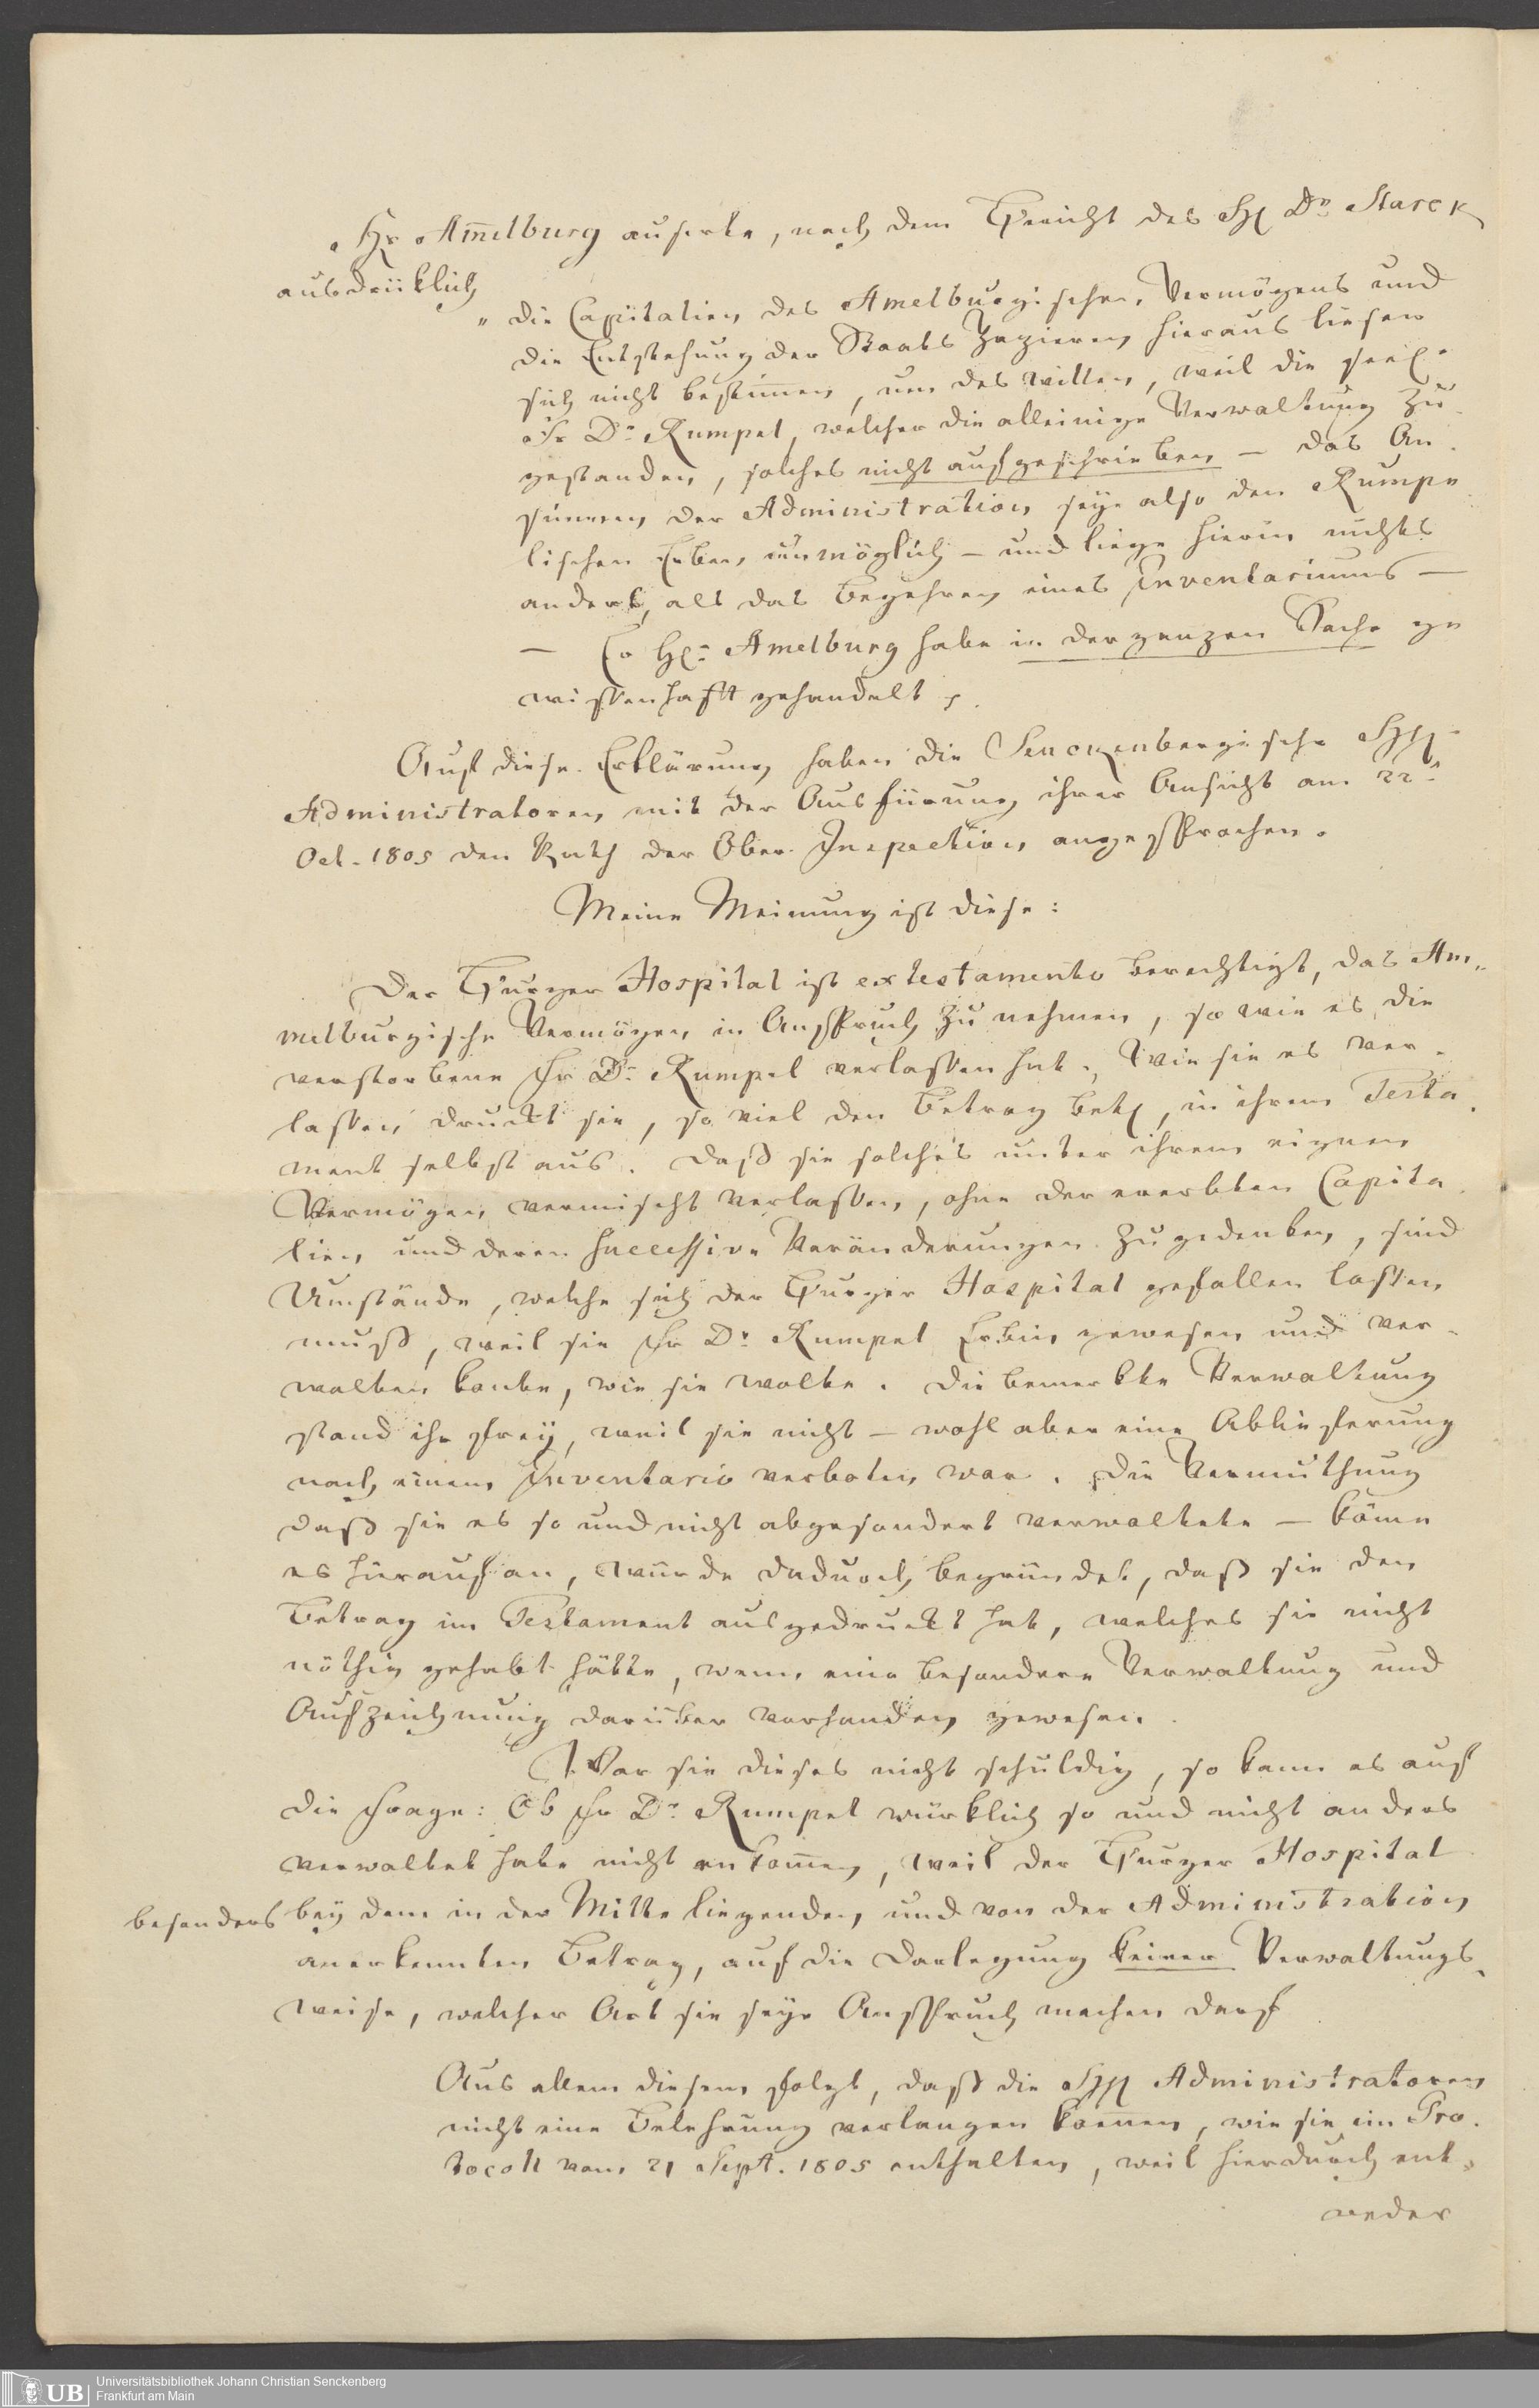 Hr Am̅elburg auserte, nach dem Bericht des H Dr Starck
ausdrüklich
„ die Capitalien des Amelburgischen Vermögens und
die Entstehung der Staats Papieren hieraus liesen
sich nicht bestim̅en, um des willen, weil die seel.
Fr Dr Rumpel, welcher die alleinige Verwaltung zu
gestanden, solches nicht aufgeschrieben – das An
sinnen der Administration seye also den Rumpe
lischen Erben unmöglich – und liege hierin nichts
anders, als das Begehren eines Inventariums –
– Er H. Amelburg habe in der ganzen Sache ge
wissenhafft gehandelt
Auf diese Erklärung haben die Senckenbergische HH
Administratoren, mit der Ausfürung ihrer Ansicht am 22t
Oct. 1805 den Rath der Ober Inspection angesprochen.
Meine Meinung ist diese:
Der Burger Hospital ist ex testamento berechtigt, das Am„
melburgische Vermögen in Anspruch zu nehmen, so wie es die
verstorbene Fr Dr Rumpel verlassen hat. Wie sie es ver-
lassen drückt sie, so viel den Betrag betr, in ihrem Testa
ment selbst aus. Daß sie solches unter ihrem eignen
Vermögen vermischt verlassen, ohne der ererbten Capita
lien und deren successive Veränderungen zu gedenken, sind
Umstände, welche sich der Burger Hospital gefallen lassen
muß, weil sie Fr Dr Rumpel Erbin gewesen und ver-
walten konte, wie sie wolte. Die bemerkte Verwaltung
stand ihr frey, weil sie nicht – wohl aber eine Ablieferung
nach einem Inventario verboten war. Die Vermuthung
daß sie es so und nicht abgesondert verwaltete – käme
es hierauf an, würde dadurch begründet, daß sie den
Betrag im Testament ausgedruckt hat, welches sie nicht
nöthig gehabt hätte, wenn eine besondere Verwaltung und
Aufzeichnung darüber vorhanden gewesen.
War sie dieses nicht schuldig, so kann es auf
die Frage: Ob Fr Dr Rumpel würklich so und nicht anders
verwaltet habe nicht ankom̅en, weil der Burger Hospital
besonders bey dem in der Mitte liegenden, und von der Administration
anerkannten Betrag, auf die Darlegung keiner Verwaltungs
weise, welcher Art sie seye Anspruch machen darf
Aus allem diesem folgt, daß die HH Administratoren
nicht eine Belehrung verlangen koennen, wie sie im Pro
tocoll vom 21 Sept. 1805 enthalten, weil hierdurch ent„
weder
UB
Universitätsbibliothek Johann Christian Senckenberg
Frankfurt am Main